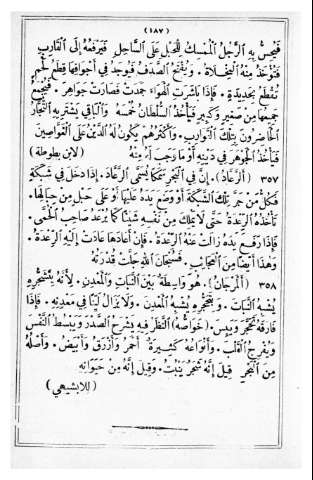 (١٨٧)
فَيُحِسُّ بِهِ الرَّجُلُ الْمُمْسِكُ لِلْحَبْلِ عَلَى السَّاحِلِ فَيَرْفَعُهُ إِلَى الْقَارِبِ
فَتُؤْخَذُ مِنْهُ الْمِخْلَاةُ. وَيُفْتَحُ الصَّدَفُ فَيُوجَدُ فِي أَجْوَافِهَا قِطَعُ لَحْمٍ
تُقْطَعُ بِحَدِيدَةٍ. فَإِذَا بَاشَرَتِ الْهَوَاءَ جَمَدَتْ فَصَارَتْ جَوَاهِرَ. فَيُجْمَعُ
جَمِيعُهَا مِنْ صَغِيرٍ وَكَبِيرٍ فَيَأْخُذُ السُّلْطَانُ خُمْسَهُ وَالْبَاقِي يَشْتَرِيهِ التُّجَّارُ
الْحَاضِرُونَ بِتِلْكَ الْقَوَارِبِ. وَأَكْثَرُهُمْ يَكُونُ لَهُ الدَّيْنُ عَلَى الْغَوَّاصِينَ
فَيَأْخُذُ الْجَوْهَرَ فِي دَيْنِهِ أَوْ مَا وَجَبَ لَهُ مِنْهُ (لابن بطوطة)
٣٥٧ (الرَّعَّادُ). إِنَّ فِي الْبَحْرِ سَمَكًا يُسَمَّى الرَّعَّادَ. إِذَا دَخَلَ فِي شَبَكَةٍ
فَكُلُّ مَنْ جَرَّ تِلْكَ الشَّبَكَةَ أَوْ وَضَعَ يَدَهُ عَلَيْهَا أَوْ عَلَى حَبْلٍ مِنْ حِبَالِهَا.
تَأْخُذُهُ الرِّعْدَةُ حَتَّى لَا يَمْلِكَ مِنْ نَفْسِهِ شَيْئًا كَمَا يُرْعَدُ صَاحِبُ الْحُمَّى.
فَإِذَا رَفَعَ يَدَهُ زَالَتْ عَنْهُ الرِّعْدَةُ. فَإِنْ أَعَادَهَا عَادَتْ إِلَيْهِ الرِّعْدَةُ.
وَهٰذَا أَيْضًا مِنَ الْعَجَائِبِ. فَسُبْحَانَ اللهِ جَلَّتْ قُدْرَتُهُ
٣٥٨ (الْمَرْجَانُ). هُوَ وَاسِطَةٌ بَيْنَ النَّبَاتِ وَالْمَعْدِنِ. لِأَنَّهُ بِتَشَجُّرِهِ
يُشْبِهُ النَّبَاتَ. وَبِتَحَجُّرِهِ يُشْبِهُ الْمَعْدِنَ. وَلَا يَزَالُ لَيِّنًا فِي مَعْدِنِهِ. فَإِذَا
فَارَقَهُ تَحَجَّرَ وَيَبِسَ. (خَوَاصُّهُ) النَّظَرُ فِيهِ يَشْرَحُ الصَّدْرَ وَيَبْسُطُ النَّفْسَ
وَيُفْرِحُ الْقَلْبَ. وَأَنْوَاعُهُ كَثِيرَةٌ. أَحْمَرُ وَأَزْرَقُ وَأَبْيَضُ. وَأَصْلُهُ
مِنَ الْبَحْرِ قِيلَ إِنَّهُ شَجَرٌ يَنْبُتُ. وَقِيلَ إِنَّهُ مِنْ حَيَوَانِهِ
(للابشيهي)